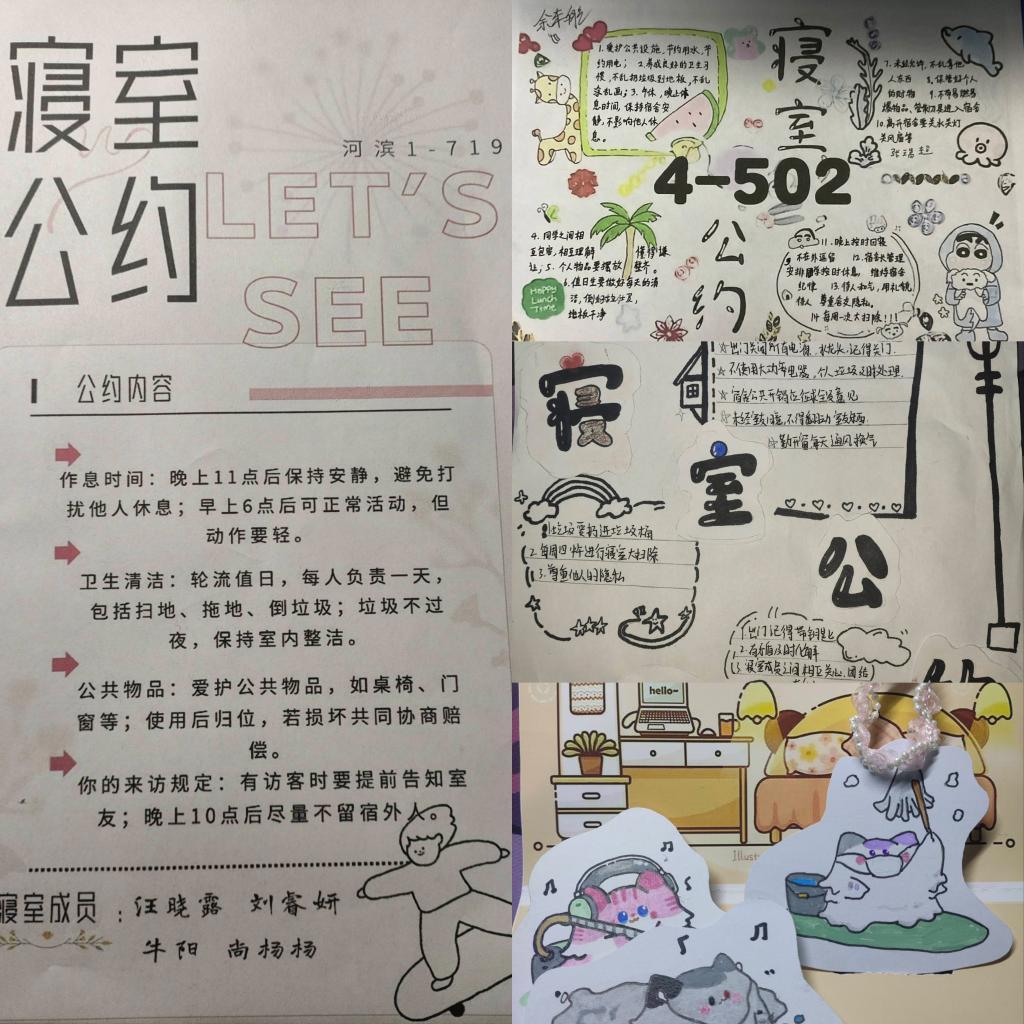 寝室
公约
河滨1-719
LET'S
SEE
公约内容
作息时间：晚上11点后保持安静，避免打
扰他人休息；早上6点后可正常活动，但
动作要轻。
卫生清洁：轮流值日，每人负责一天，
包括扫地、拖地、倒垃圾；垃圾不过
夜，保持室内整洁。
公共物品：爱护公共物品，如桌椅、门
窗等；使用后归位，若损坏共同协商赔
偿。
你的来访规定：有访客时要提前告知室
友；晚上10点后尽量不留宿外人。
寝室成员：汪晓露 刘睿妍
牛阳 尚杨杨
寝
室
4-502
公
约
1.爱护公共设施，节约用水，节
约用电；2.养成良好的卫生习
惯，不乱扔垃圾到地板，不乱
涂乱画；3.午休，晚上休
息时间，保持宿舍安
静，不影响他人休
息。
4.同学之间相
互包容，相互理解 懂得谦
让；5.个人物品要摆放整齐。
6.值日生要做好每天的清
洁，倒好垃圾，
地板干净
Happy
Lunch
Time
7.未经允许，不乱拿他
人东西 8.保管好个人
的财物 9.不带易燃易
爆物品，管制刀具进入宿舍
10.离开宿舍要关水关灯
关风扇等
11.晚上按时回寝
不在外逗留 12.宿舍长管理
安排按时休息，维持宿舍
纪律 13.待人和气，用礼貌
待人 尊重舍友隐私。
14.每周一次大扫除!!!
寝
室
公
出门关闭所有电源，水龙头，记得关门.
不使用大功率电器，个人垃圾及时处理.
宿舍公共开销应征求全员意见
未经室友同意，不得翻动室友物品
勤开窗每天通风换气
1.垃圾要扔进垃圾桶
2.每周四将进行寝室大扫除
3.尊重他人的隐私
1.出门记得带钥匙
2.有矛盾及时化解
3.寝室成员之间相互关心，团结
hello~
Illust